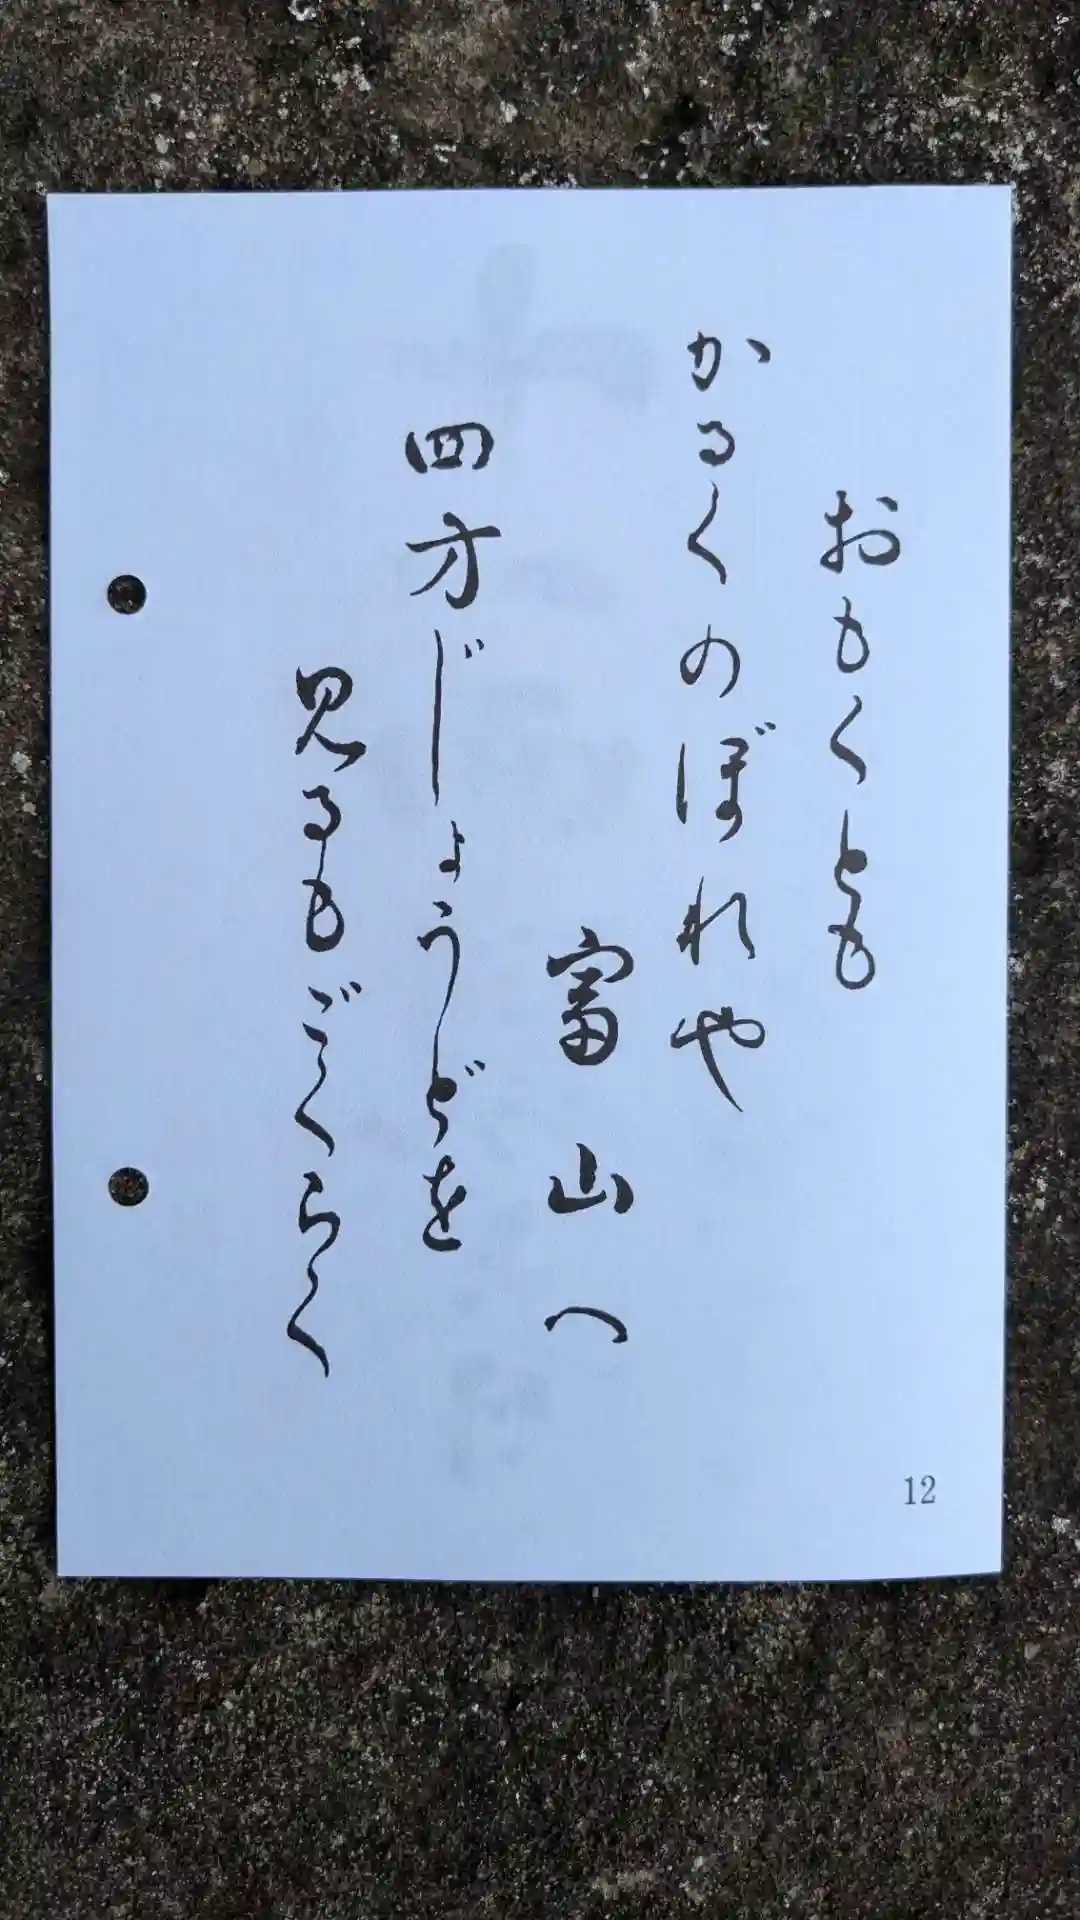 おもくとも
かるくのぼれや
富山へ
四方じょうどを
見るもごくらく
12